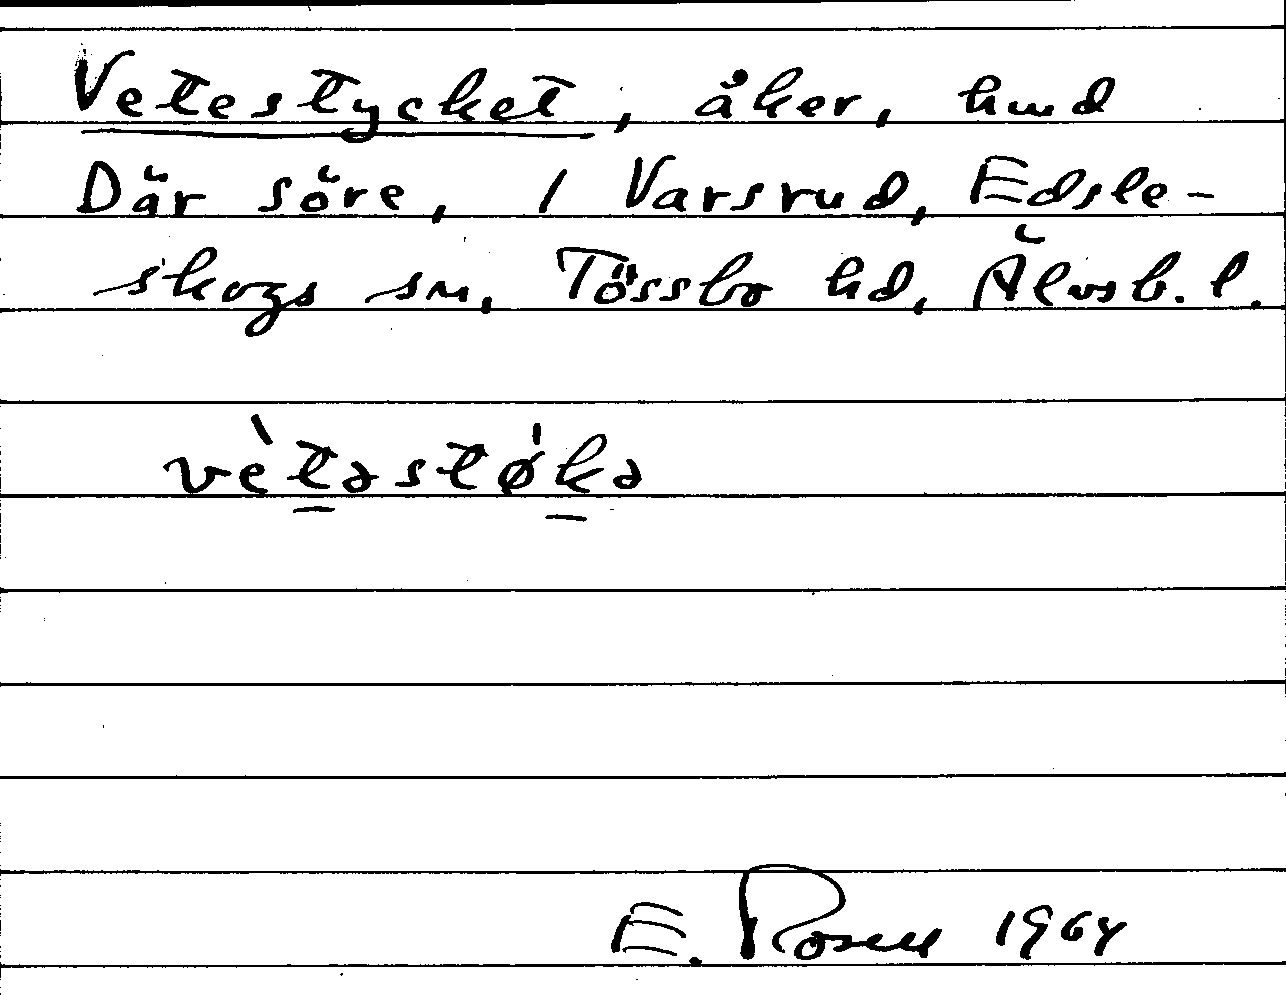 Vetestycket, åker, hmd
Där söre, 1 Varsrud, Edsle-
skogs sn, Tössbo hd, Älvsb. l.
vètəstǿkə
E. Rosell 1964